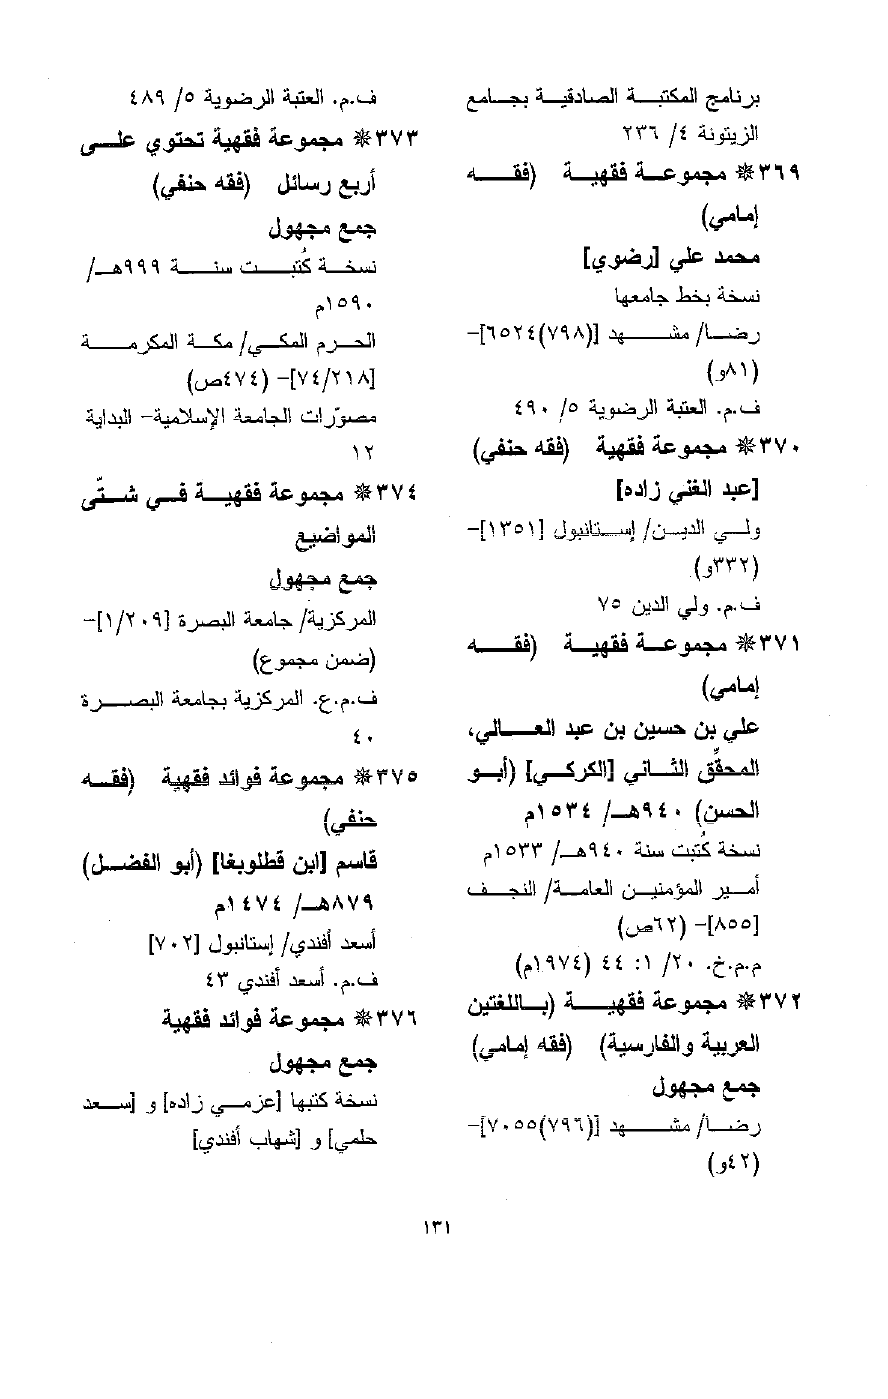 برنامج المكتبة الصادقية بجامع
الزيتونة ٤/ ٢٣٦
٣٦٩❋ مجموعة فقهية (فقه
إمامي)
محمد علي [رضوي]
نسخة بخط جامعها
رضا/ مشهد [(٧٩٨)٦٥٢٤]-
(٨١و)
ف.م. العتبة الرضوية ٥/ ٤٩٠
٣٧٠❋ مجموعة فقهية (فقه حنفي)
[عبد الغني زاده]
ولي الدين/ إستانبول [١٣٥١]-
(٣٣٢و)
ف.م. ولي الدين ٧٥
٣٧١❋ مجموعة فقهية (فقه
إمامي)
علي بن حسين بن عبد العالي،
المحقِّق الثاني [الكركي] (أبو
الحسن) ٩٤٠هـ/ ١٥٣٤م
نسخة كُتبت سنة ٩٤٠هـ/ ١٥٣٣م
أمير المؤمنين العامة/ النجف
[٨٥٥]- (٦٢ص)
م.م.خ. ٢٠/ ١: ٤٤ (١٩٧٤م)
٣٧٢❋ مجموعة فقهية (باللغتين
العربية والفارسية) (فقه إمامي)
جمع مجهول
رضا/ مشهد [(٧٩٦)٧٠٥٥]-
(٤٢و)
ف.م. العتبة الرضوية ٥/ ٤٨٩
٣٧٣❋ مجموعة فقهية تحتوي على
أربع رسائل (فقه حنفي)
جمع مجهول
نسخة كُتبت سنة ٩٩٩هـ/
١٥٩٠م
الحرم المكي/ مكة المكرمة
[٧٤/٢١٨]- (٤٧٤ص)
مصوّرات الجامعة الإسلامية- البداية
١٢
٣٧٤❋ مجموعة فقهية في شتّى
المواضيع
جمع مجهول
المركزية/ جامعة البصرة [١/٢٠٩]-
(ضمن مجموع)
ف.م.ع. المركزية بجامعة البصرة
٤٠
٣٧٥❋ مجموعة فوائد فقهية (فقه
حنفي)
قاسم [ابن قطلوبغا] (أبو الفضل)
٨٧٩هـ/ ١٤٧٤م
أسعد أفندي/ إستانبول [٧٠٢]
ف.م. أسعد أفندي ٤٣
٣٧٦❋ مجموعة فوائد فقهية
جمع مجهول
نسخة كتبها [عزمي زاده] و [سعد
حلمي] و [شهاب أفندي]
١٣١